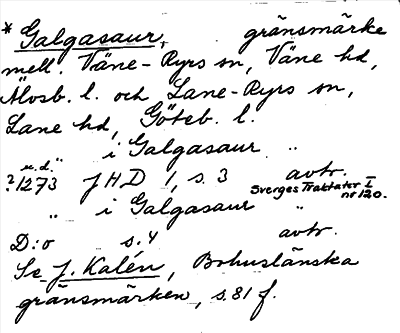 * Galgasaur, gränsmärke
mell. Väne-Ryrs sn, Väne hd,
Älvsb. l. och Lane-Ryrs sn,
Lane hd, Göteb. l.
i Galgasaur "
u.d."
?1273 JHD 1, s. 3 avtr.
Sverges Traktater I
nr 120.
" i Galgasaur "
D:o s. 4 avtr.
Se J. Kalén, Bohuslänska
gränsmärken, s. 81 f.